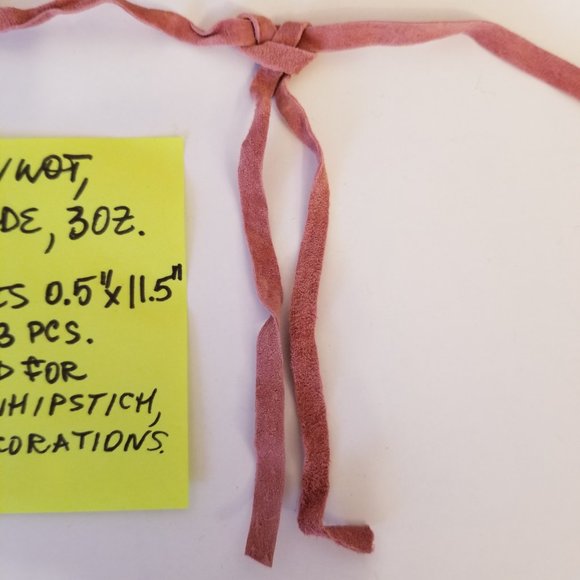 /WOT,
DE, 3OZ.
ES 0.5"x11.5"
3 PCS.
D FOR
WHIPSTICH,
CORATIONS.